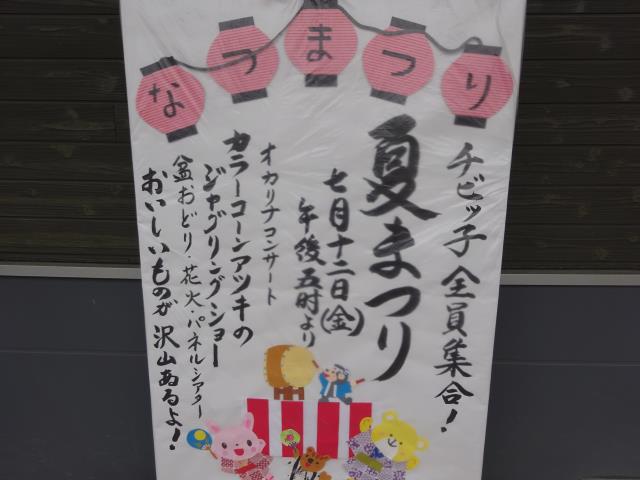 なつまつり
チビッ子全員集合!
夏まつり
七月十二日(金)
午後五時より
オカリナコンサート
カラーコーンアツキの
ジャグリングショー
盆おどり・花火・パネルシアター
おいしいものが沢山あるよ!